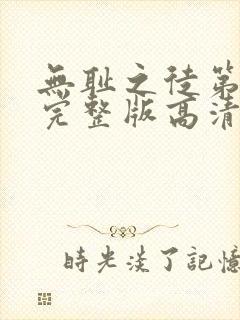 無耻之徒第
完整版高清
時光淡了記憶